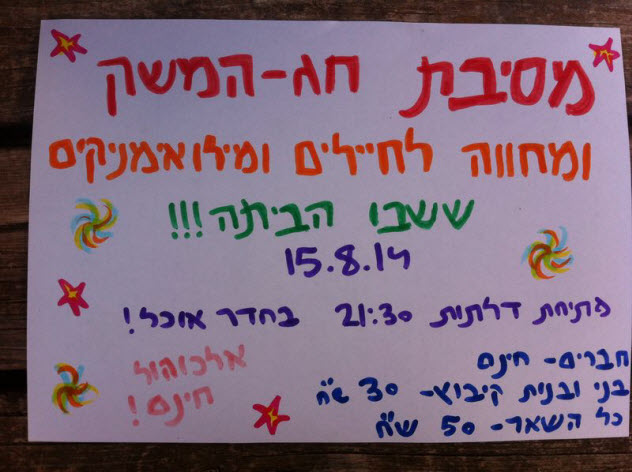 מסיבת חג-המשק
ומחווה לחיילים ומילואימניקים
ששבו הביתה!!!
15.8.14
פתיחת דלתות 21:30 בחדר אוכל!
אלכוהול
חינם!
חברים- חינם
בני ובנות קיבוץ- 30 ש"ח
כל השאר- 50 ש"ח